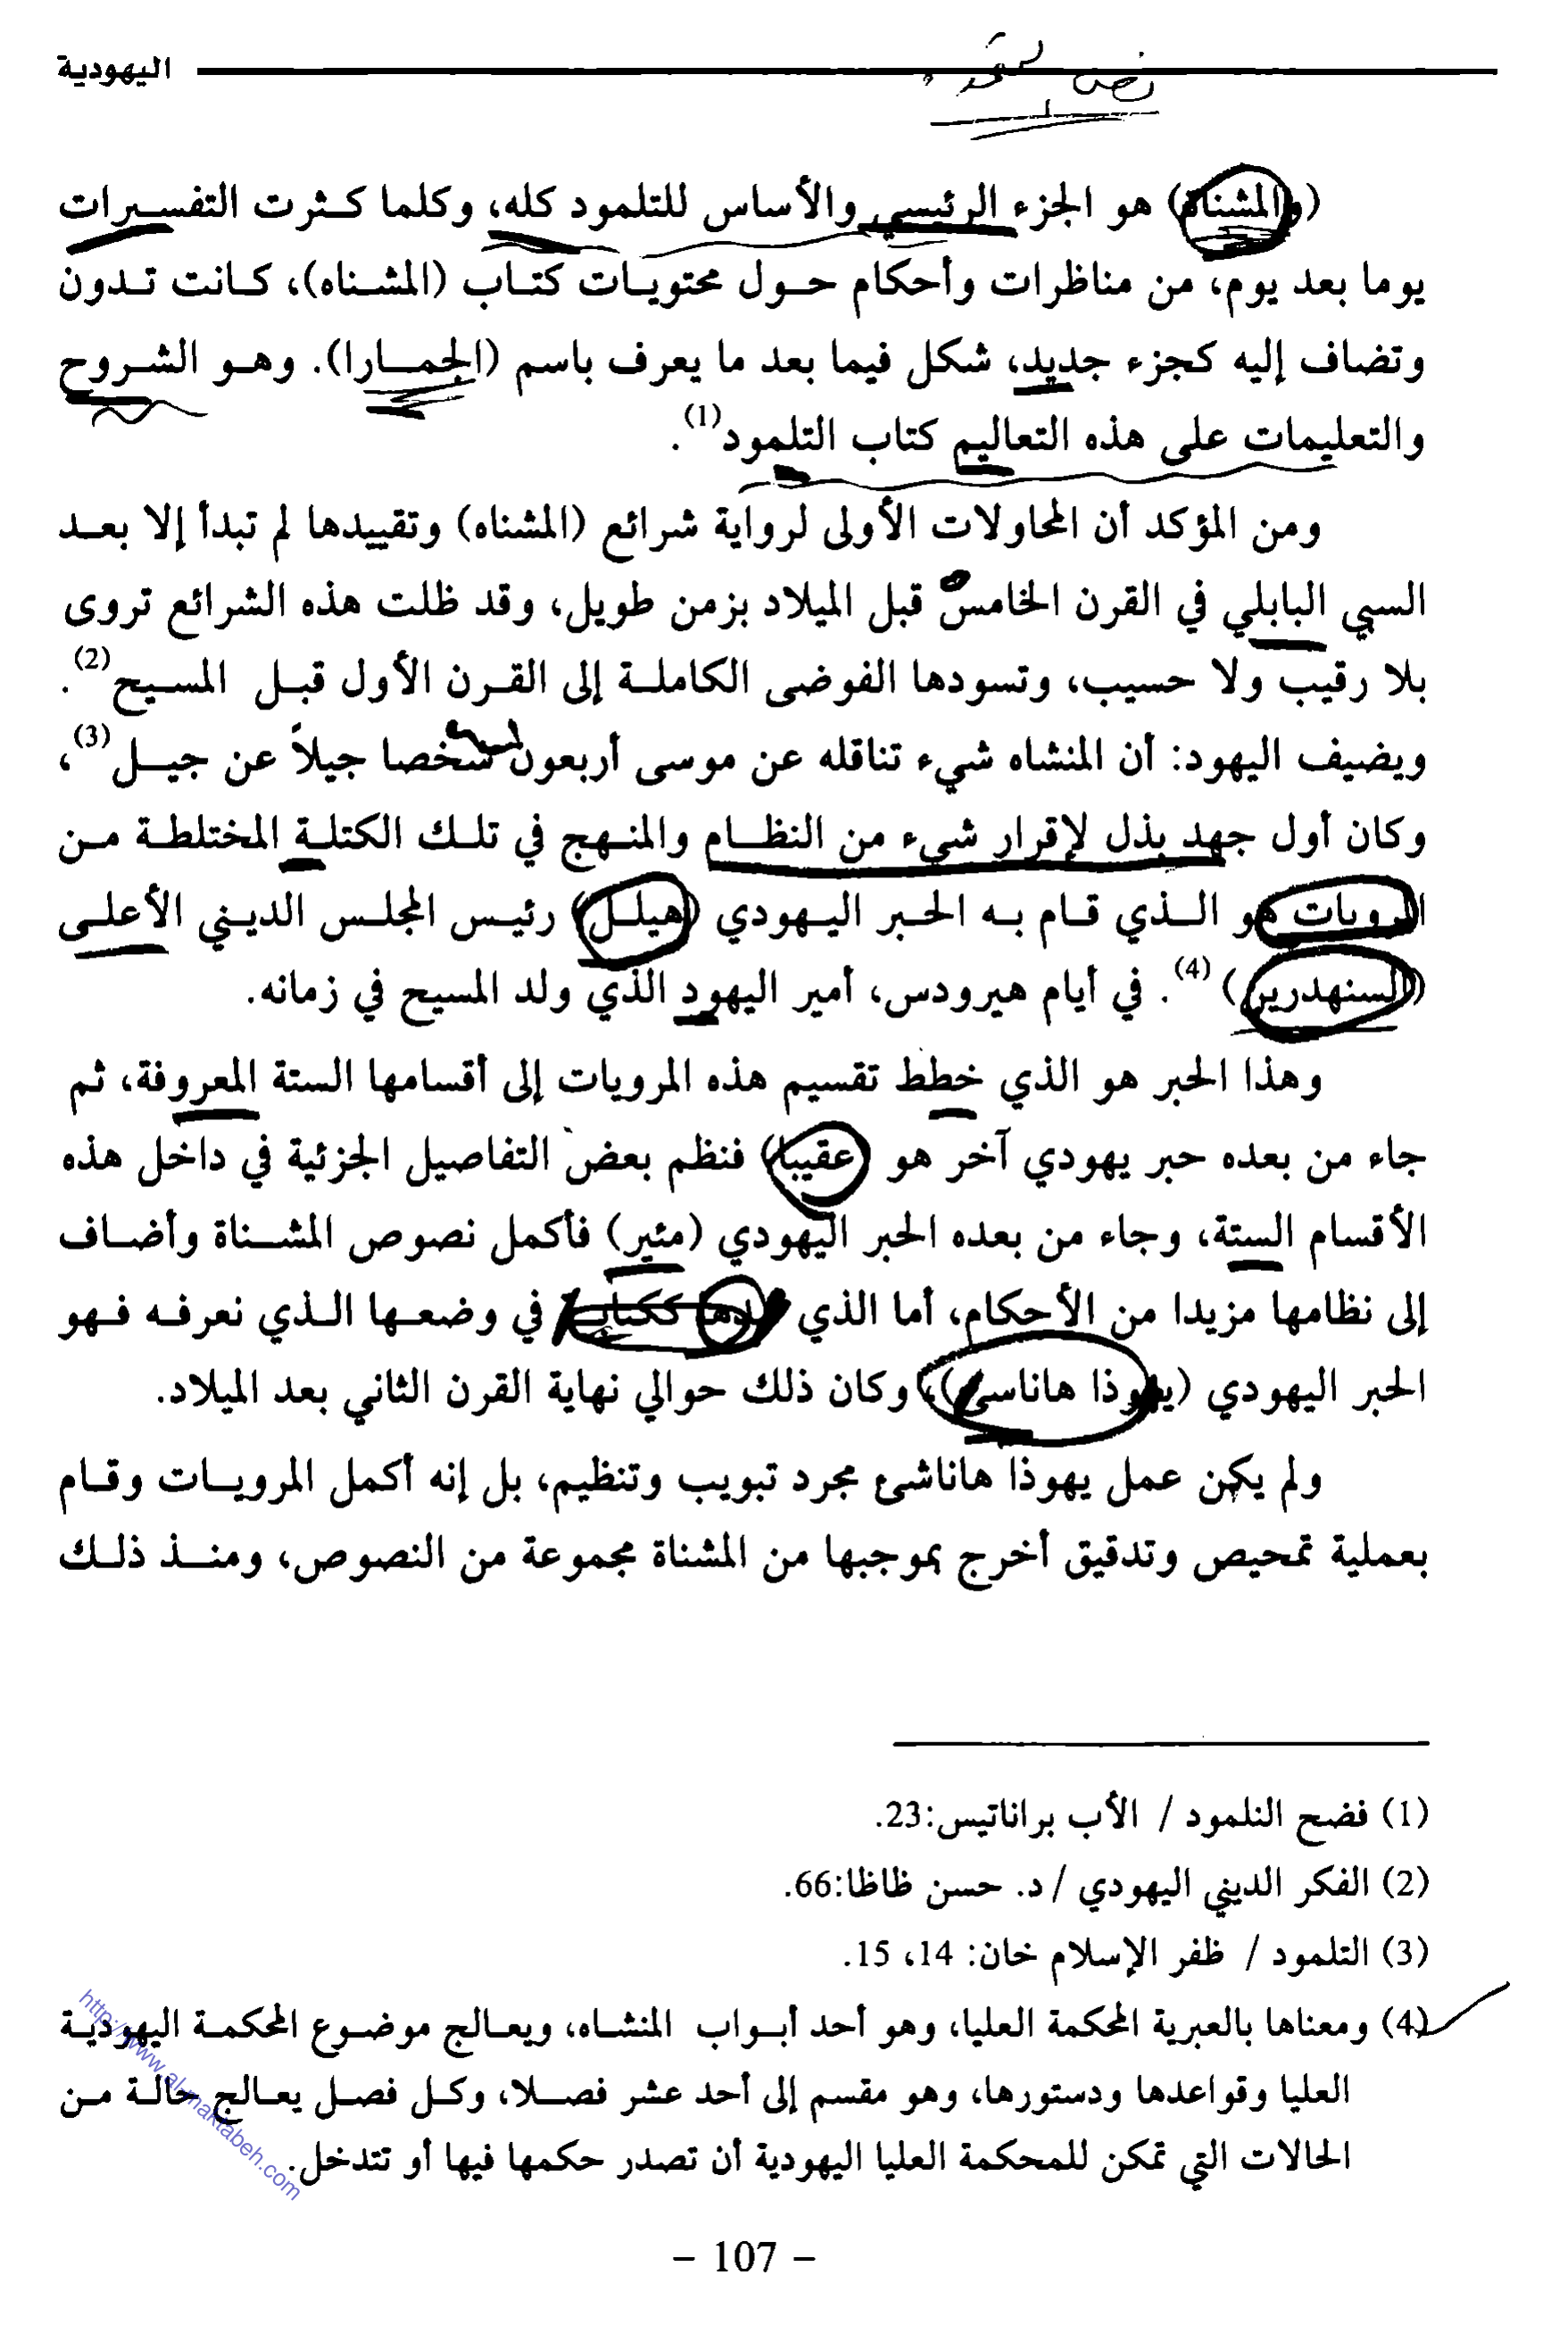 اليهودية
(والمشناة) هو الجزء الرئيسي والأساس للتلمود كله، وكلما كثرت التفسيرات
يوما بعد يوم، من مناظرات وأحكام حول محتويات كتاب (المشناه)، كانت تدون
وتضاف إليه كجزء جديد، شكل فيما بعد ما يعرف باسم (الجمارا). وهو الشروح
والتعليمات على هذه التعاليم كتاب التلمود(1).
ومن المؤكد أن المحاولات الأولى لرواية شرائع (المشناه) وتقييدها لم تبدأ إلا بعد
السبي البابلي في القرن الخامس قبل الميلاد بزمن طويل، وقد ظلت هذه الشرائع تروى
بلا رقيب ولا حسيب، وتسودها الفوضى الكاملة إلى القرن الأول قبل المسيح(2).
ويضيف اليهود: أن المنشاه شيء تناقله عن موسى أربعون شخصا جيلاً عن جيل(3)،
وكان أول جهد بذل لإقرار شيء من النظام والمنهج في تلك الكتلة المختلطة من
المرويات هو الذي قام به الحبر اليهودي (هيلل) رئيس المجلس الديني الأعلى
(السنهدرين) (4). في أيام هيرودس، أمير اليهود الذي ولد المسيح في زمانه.
وهذا الحبر هو الذي خطط تقسيم هذه المرويات إلى أقسامها الستة المعروفة، ثم
جاء من بعده حبر يهودي آخر هو (عقيبا) فنظم بعض التفاصيل الجزئية في داخل هذه
الأقسام الستة، وجاء من بعده الحبر اليهودي (مئير) فأكمل نصوص المشناة وأضاف
إلى نظامها مزيدا من الأحكام، أما الذي في وضعها الذي نعرفه فهو
الحبر اليهودي (يهوذا هاناسي)، وكان ذلك حوالي نهاية القرن الثاني بعد الميلاد.
ولم يكن عمل يهوذا هاناشئ مجرد تبويب وتنظيم، بل إنه أكمل المرويات وقام
بعملية تمحيص وتدقيق أخرج بموجبها من المشناة مجموعة من النصوص، ومنذ ذلك
(1) فضح التلمود / الأب براناتيس:23.
(2) الفكر الديني اليهودي / د. حسن ظاظا:66.
(3) التلمود / ظفر الإسلام خان: 14، 15.
(4) ومعناها بالعبرية المحكمة العليا، وهو أحد أبواب المنشاه، ويعالج موضوع المحكمة اليهودية
العليا وقواعدها ودستورها، وهو مقسم إلى أحد عشر فصلا، وكل فصل يعالج حالة من
الحالات التي تمكن للمحكمة العليا اليهودية أن تصدر حكمها فيها أو تتدخل.
http://www.al-maktabeh.com
– 107 –